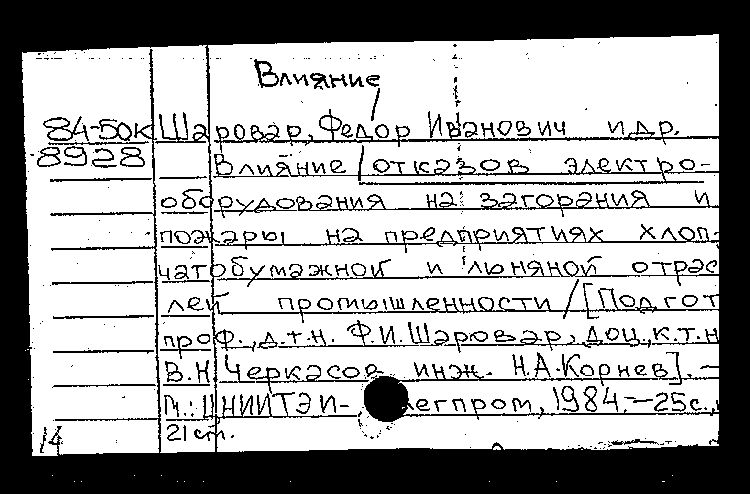 Влияние
84-5ок Шаровар, Федор Иванович и др.
8928 Влияние / отказов электро-
оборудования на загорания и
пожары на предприятиях хлоп-
чатобумажной и льняной отрас
лей промышленности / [Подгот
проф., д.т.н. Ф.И. Шаровар, доц., к.т.н
В.Н Черкасов инж. Н.А. Корнев]. —
М.: ЦНИИТЭИ- легпром, 1984. — 25с.,
21 см.
14